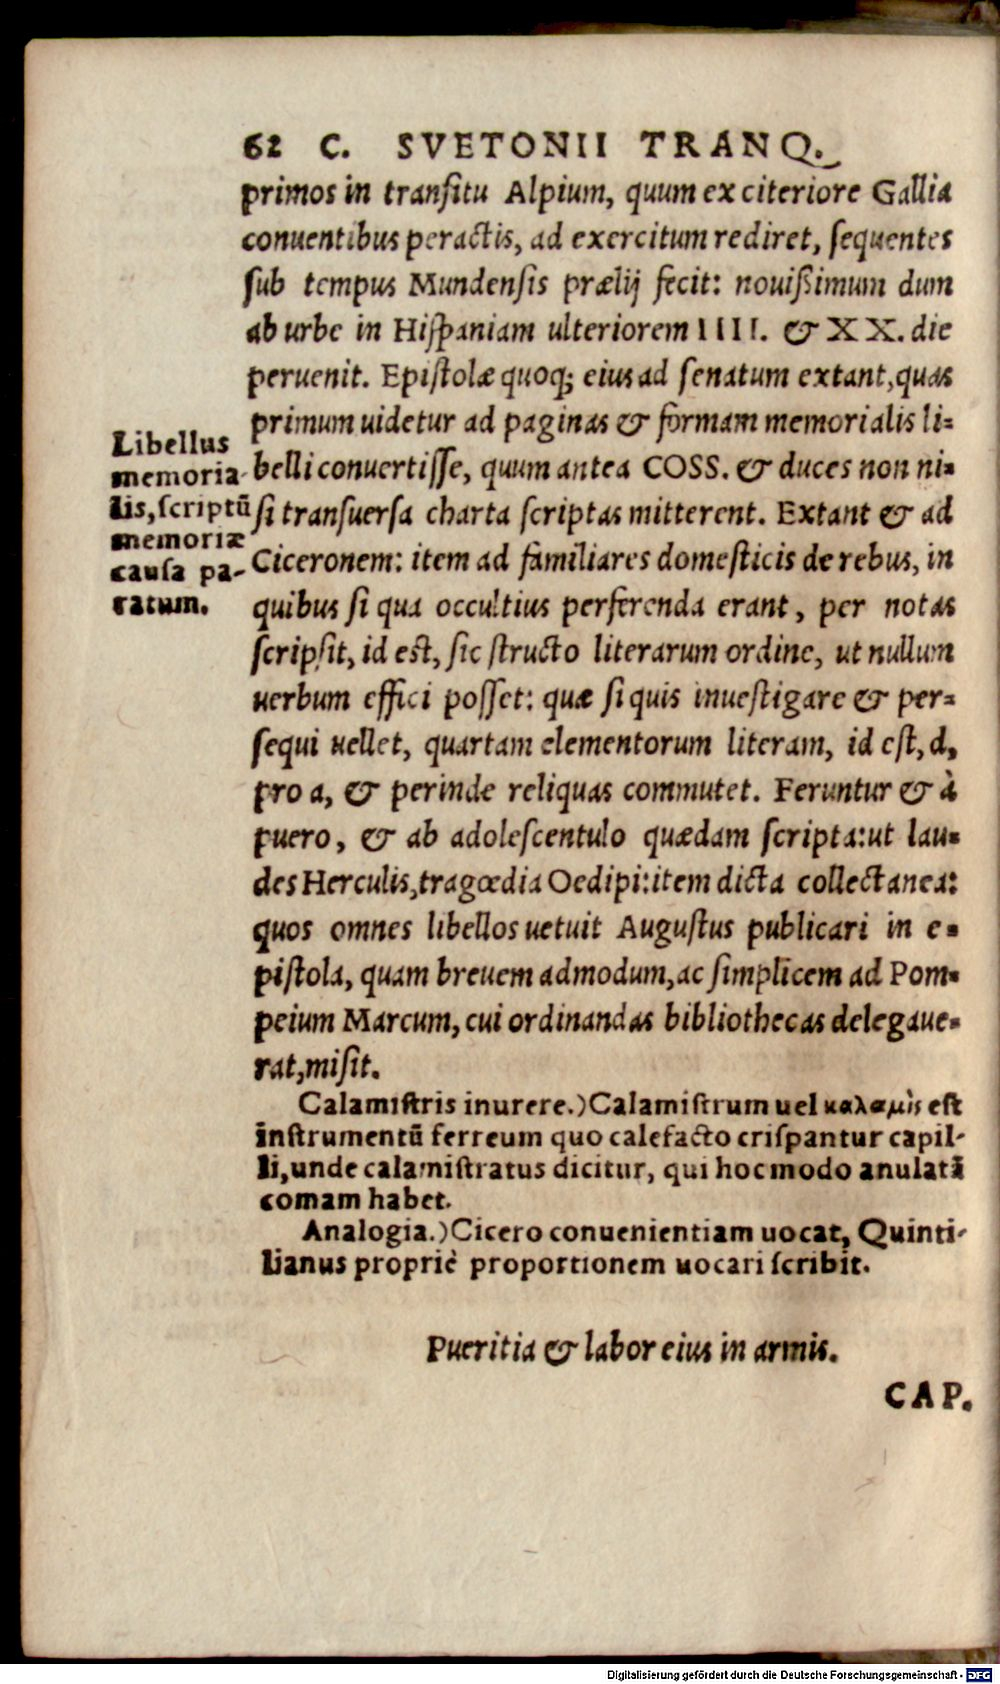 62 C. SVETONII TRANQ.
primos in transitu Alpium, quum ex citeriore Gallia
conuentibus peractis, ad exercitum rediret, sequentes
sub tempus Mundensis prælij fecit: nouißimum dum
ab urbe in Hispaniam ulteriorem IIII. & XX. die
peruenit. Epistolæ quoq; eius ad senatum extant, quas
primum uidetur ad paginas & formam memorialis li-
belli conuertisse, quum antea COSS. & duces non ni-
si transuersa charta scriptas mitterent. Extant & ad
Ciceronem: item ad familiares domesticis de rebus, in
quibus si qua occultius perferenda erant, per notas
scripsit, id est, sic structo literarum ordine, ut nullum
uerbum effici posset: quæ si quis inuestigare & per-
sequi uellet, quartam elementorum literam, id est, d,
pro a, & perinde reliquas commutet. Feruntur & à
puero, & ab adolescentulo quædam scripta: ut lau-
des Herculis, tragœdia Oedipi: item dicta collectanea:
quos omnes libellos uetuit Augustus publicari in e-
pistola, quam breuem admodum, ac simplicem ad Pom-
peium Marcum, cui ordinandas bibliothecas delegaue-
rat, misit.
Libellus
memoria-
lis, scriptũ
memoriæ
causa pa-
ratum.
Calamistris inurere.) Calamistrum uel καλαμὶς est
instrumentũ ferreum quo calefacto crispantur capil-
li, unde calamistratus dicitur, qui hoc modo anulatã
comam habet.
Analogia.) Cicero conuenientiam uocat, Quinti-
lianus propriè proportionem uocari scribit.
Pueritia & labor eius in armis.
CAP.
Digitalisierung gefördert durch die Deutsche Forschungsgemeinschaft - DFG